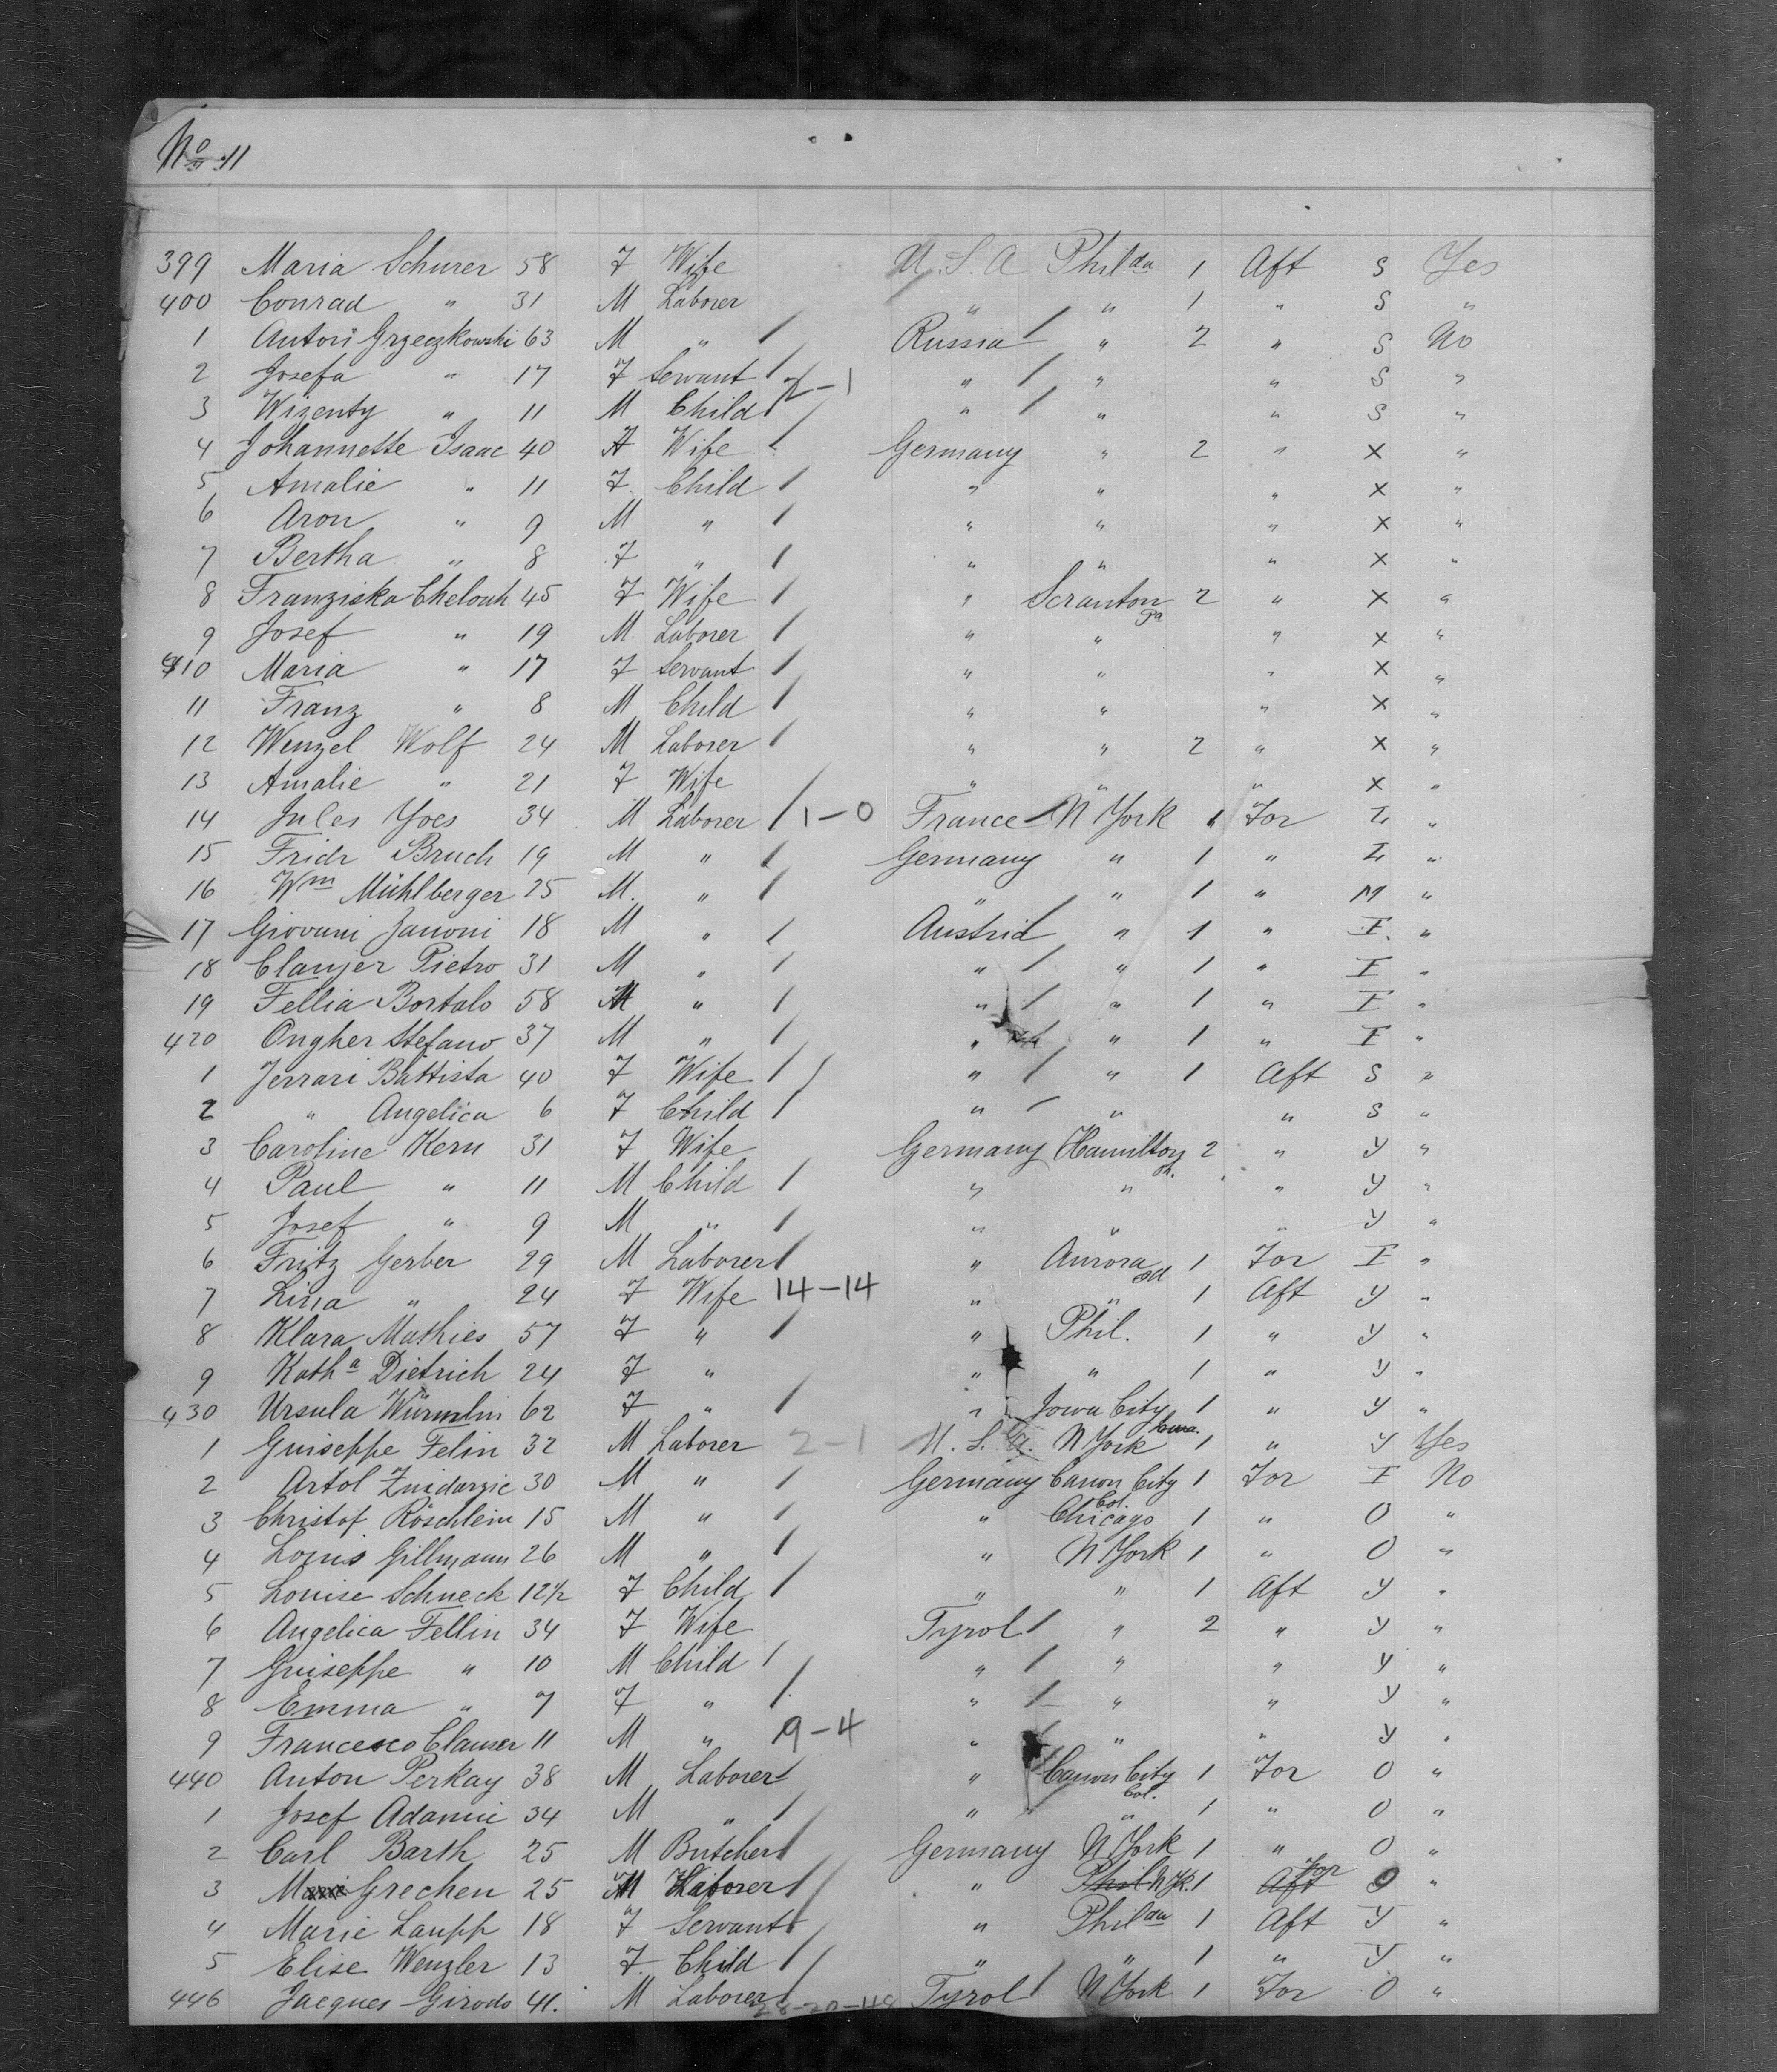 No 11
399 Maria Schurer 58 F Wife U.S.A Philda 1 Aft S Yes
400 Conrad " 31 M Laborer " " 1 " S "
1 Antoni Grzeczkowski 63 M " / Russia / " 2 " S No
2 Josefa " 17 F Servant / 2-1 " / " " S "
3 Wizenty " 11 M Child / " / " " S "
4 Johannette Isaac 40 F Wife / Germany " 2 " X "
5 Amalie " 11 F Child / " " " X "
6 Aron " 9 M " / " " " X "
7 Bertha " 8 F " / " " " X "
8 Franziska 45 F Wife / " Scranton Pa 2 " X "
9 Josef " 19 M Laborer / " " " X "
410 Maria " 17 F Servant / " " " X "
11 Franz " 8 M Child / " " " X "
12 Wenzel Wolf 24 M Laborer / " " 2 " X "
13 Amalie " 21 F Wife " " " X "
14 Jules Yoes 34 M Laborer / 1-0 France N York " For "
15 Fridr Bruch 19 M " / Germany " 1 " "
16 Wm Mühlberger 25 M. " / " " 1 " M "
17 Giovani Zanoni 18 M " / Austria " 1 " I "
18 Clauser Pietro 31 M " / " / " 1 " I "
19 Fellia Bortalo 58 M " / " / " 1 " I "
420 Ongher Stefano 37 M " / " " 1 " I "
1 Ferrari Battista 40 F Wife / " / " 1 Aft S "
2 " Angelica 6 F Child / " / " " S "
3 Caroline Kern 31 F Wife Germany Hamilton 2 " Y "
4 Paul " 11 M Child / " " " Y "
5 Josef " 9 M " / " " " Y "
6 Fritz Gerber 29 M Laborer / " Aurora 1 For I "
7 Lina " 24 F Wife 14-14 " " 1 Aft Y "
8 Klara Mathies 57 F " / " Phil. 1 " Y "
9 Katha Dietrich 24 F " " " 1 " Y "
430 Ursula Würmlin 62 F " / " Iowa City 1 " Y "
1 Guiseppe Felin 32 M Laborer 2-1 U.S.A. N York 1 " Y Yes
2 Artol Znidarzic 30 M " / Germany Canon City Col. 1 For I No
3 Christof Röschlein 15 M " / " Chicago 1 " O "
4 Louis Gillmann 26 M " / " N York 1 " O "
5 Louise Schneck 12½ F Child / " " 1 Aft Y "
6 Angelica Fellin 34 F Wife Tyrol / " 2 " Y "
7 Guiseppe " 10 M Child / " / " " Y "
8 Emma " 7 F " / " / " " Y "
9 Francesco Clauser 11 M " 9-4 " " " Y "
440 Anton Perkay 38 M Laborer / " Canon City Col. 1 For O "
1 Josef Adamic 34 M " / " " 1 " O "
2 Carl Barth 25 M Butcher / Germany N York 1 " O "
3 Grechen 25 M Laborer / " Phil N Yk. 1 Aft For O "
4 Marie Laupp 18 F Servant / " Philda 1 Aft Y "
5 Elise Wenzler 13 F Child / " " 1 " Y "
446 Jacques Girodo 41. M Laborer / Tyrol / N York 1 For O "